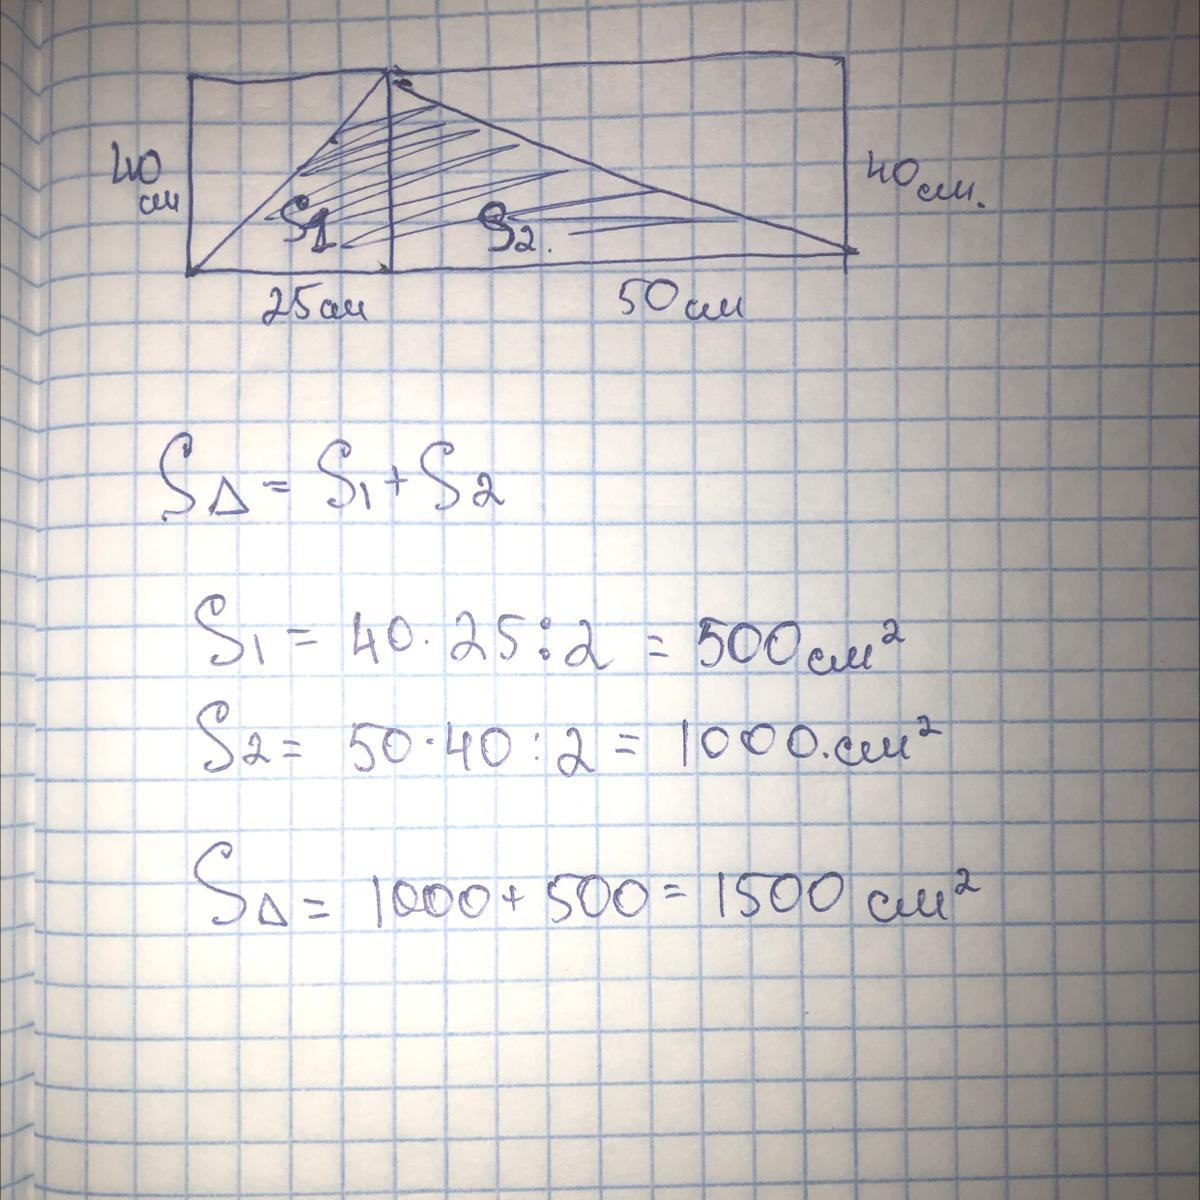 40 см
S1
S2.
40 см.
25 см
50 см
SΔ = S1 + S2
S1 = 40 · 25 : 2 = 500 см²
S2 = 50 · 40 : 2 = 1000. см²
SΔ = 1000 + 500 = 1500 см²